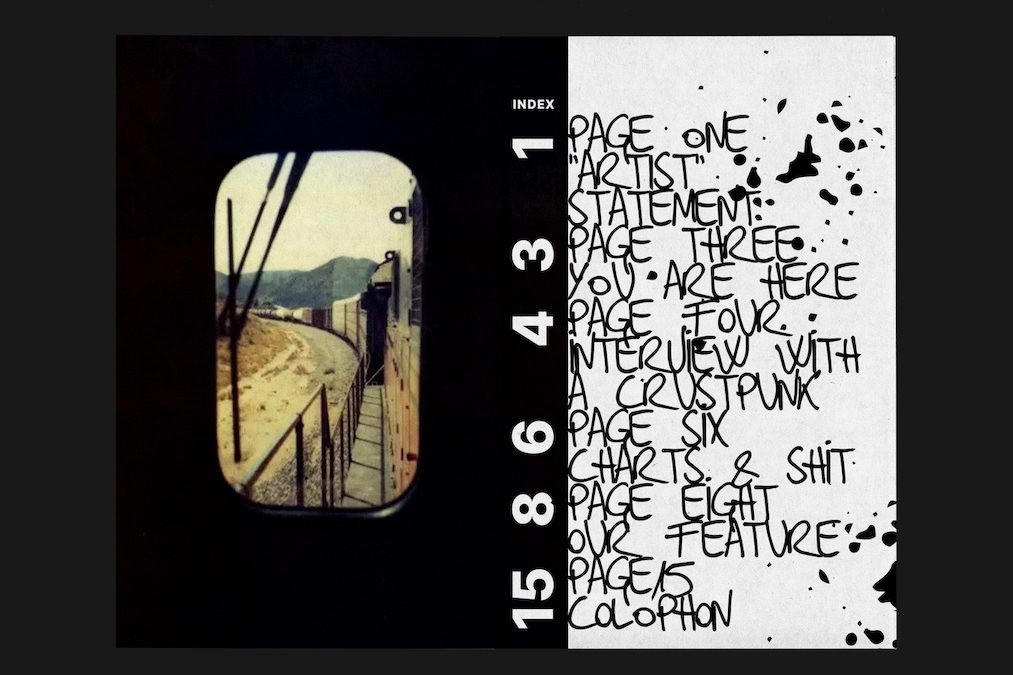 INDEX
1
3
4
6
8
15
PAGE ONE
"ARTIST"
STATEMENT
PAGE THREE
YOU ARE HERE
PAGE FOUR
INTERVIEW WITH
A CRUSTPUNK
PAGE SIX
CHARTS & SHIT
PAGE EIGHT
OUR FEATURE
PAGE/15
COLOPHON